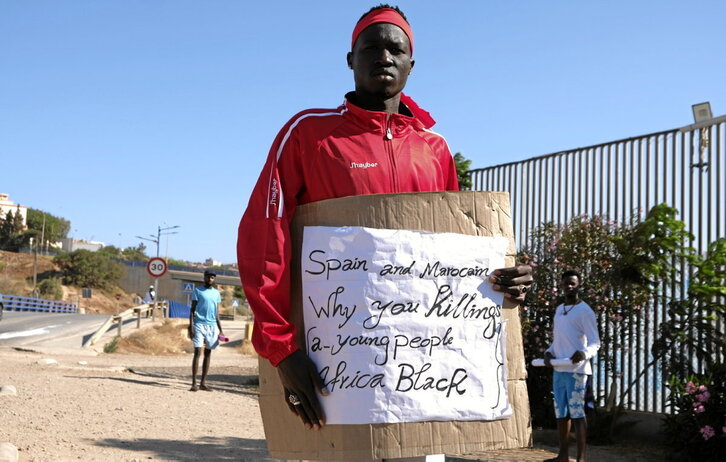 J'hayber
J'hayber
30
Spain and Marocain
Why you killings
(a-young people
Africa Black